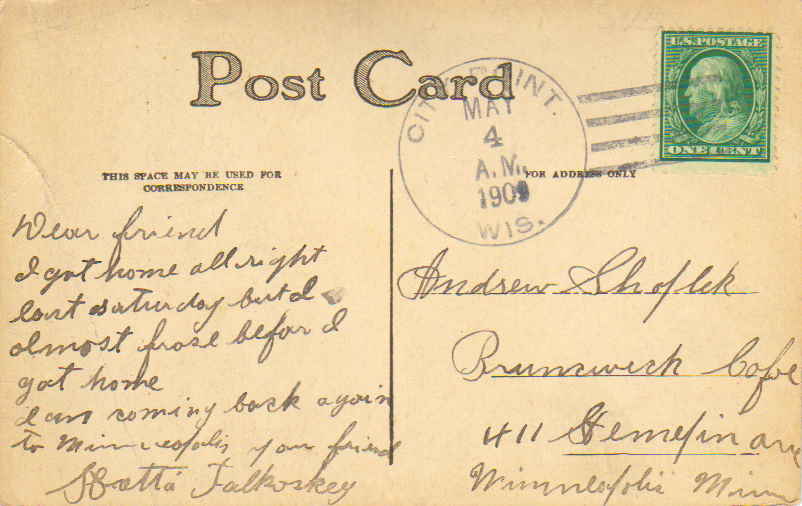 Post Card
U.S. POSTAGE
ONE CENT
CITY POINT.
MAY
4
A.M.
1909
WIS.
THIS SPACE MAY BE USED FOR
CORRESPONDENCE
FOR ADDRESS ONLY
Dear friend
I got home all right
last saturday but I
almost frose befor I
got home
I am coming back again
to Minneapolis your friend
Falkoskey
Andrew Shoflek
Brunswick Cafe
411 Hennepin ave
Minneapolis Minn